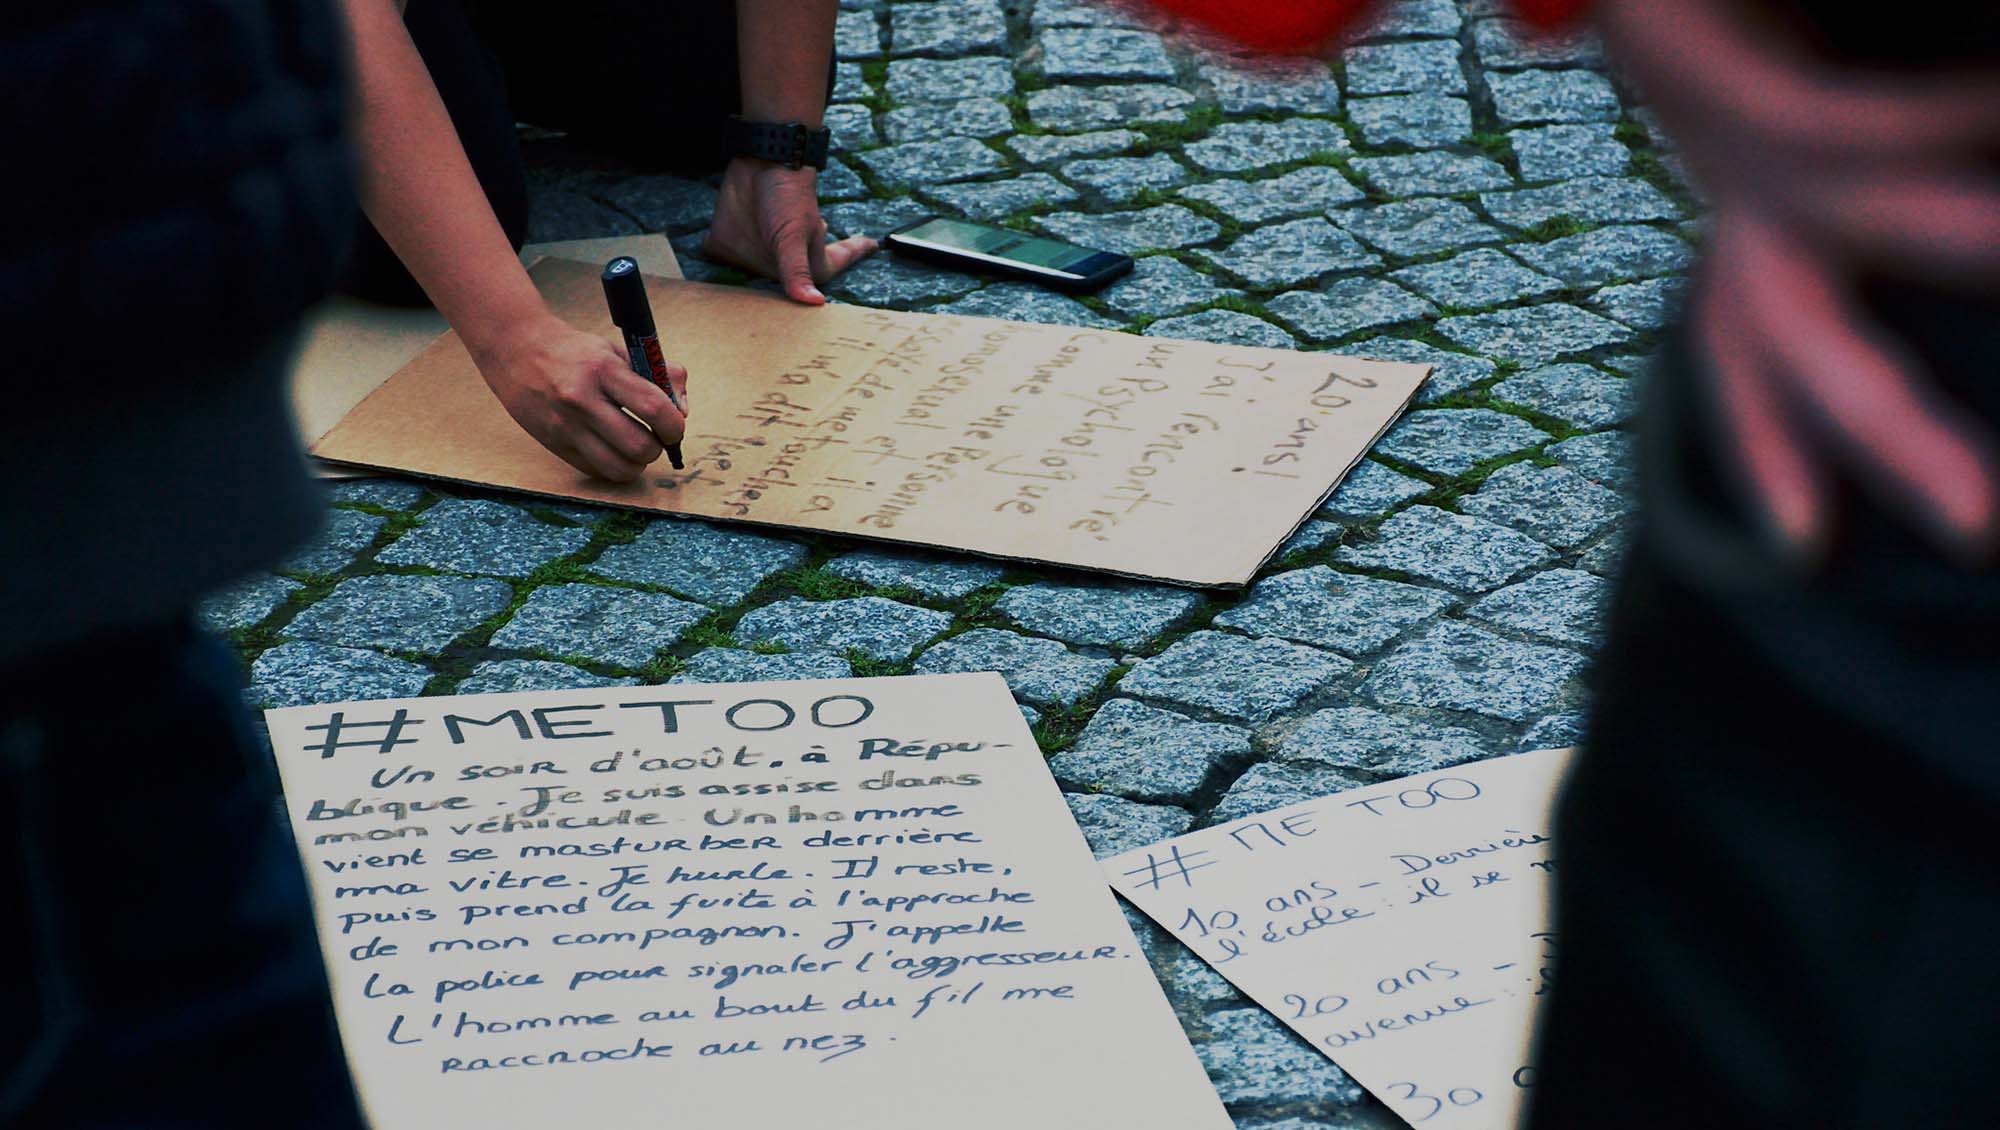 20 ans!
J'ai rencontré
un Psychologue
comme une Personne
homosexuel et il a
essayé de me toucher
et il m'a dit que
#METOO
Un soir d'août, à Répu-
blique. Je suis assise dans
mon véhicule. Un homme
vient se masturber derrière
ma vitre. Je hurle. Il reste,
puis prend la fuite à l'approche
de mon compagnon. J'appelle
la police pour signaler l'aggresseur.
L'homme au bout du fil me
raccroche au nez.
# ME TOO
10 ans - Derriè
l'école : il se m
20 ans -
avenue :
30